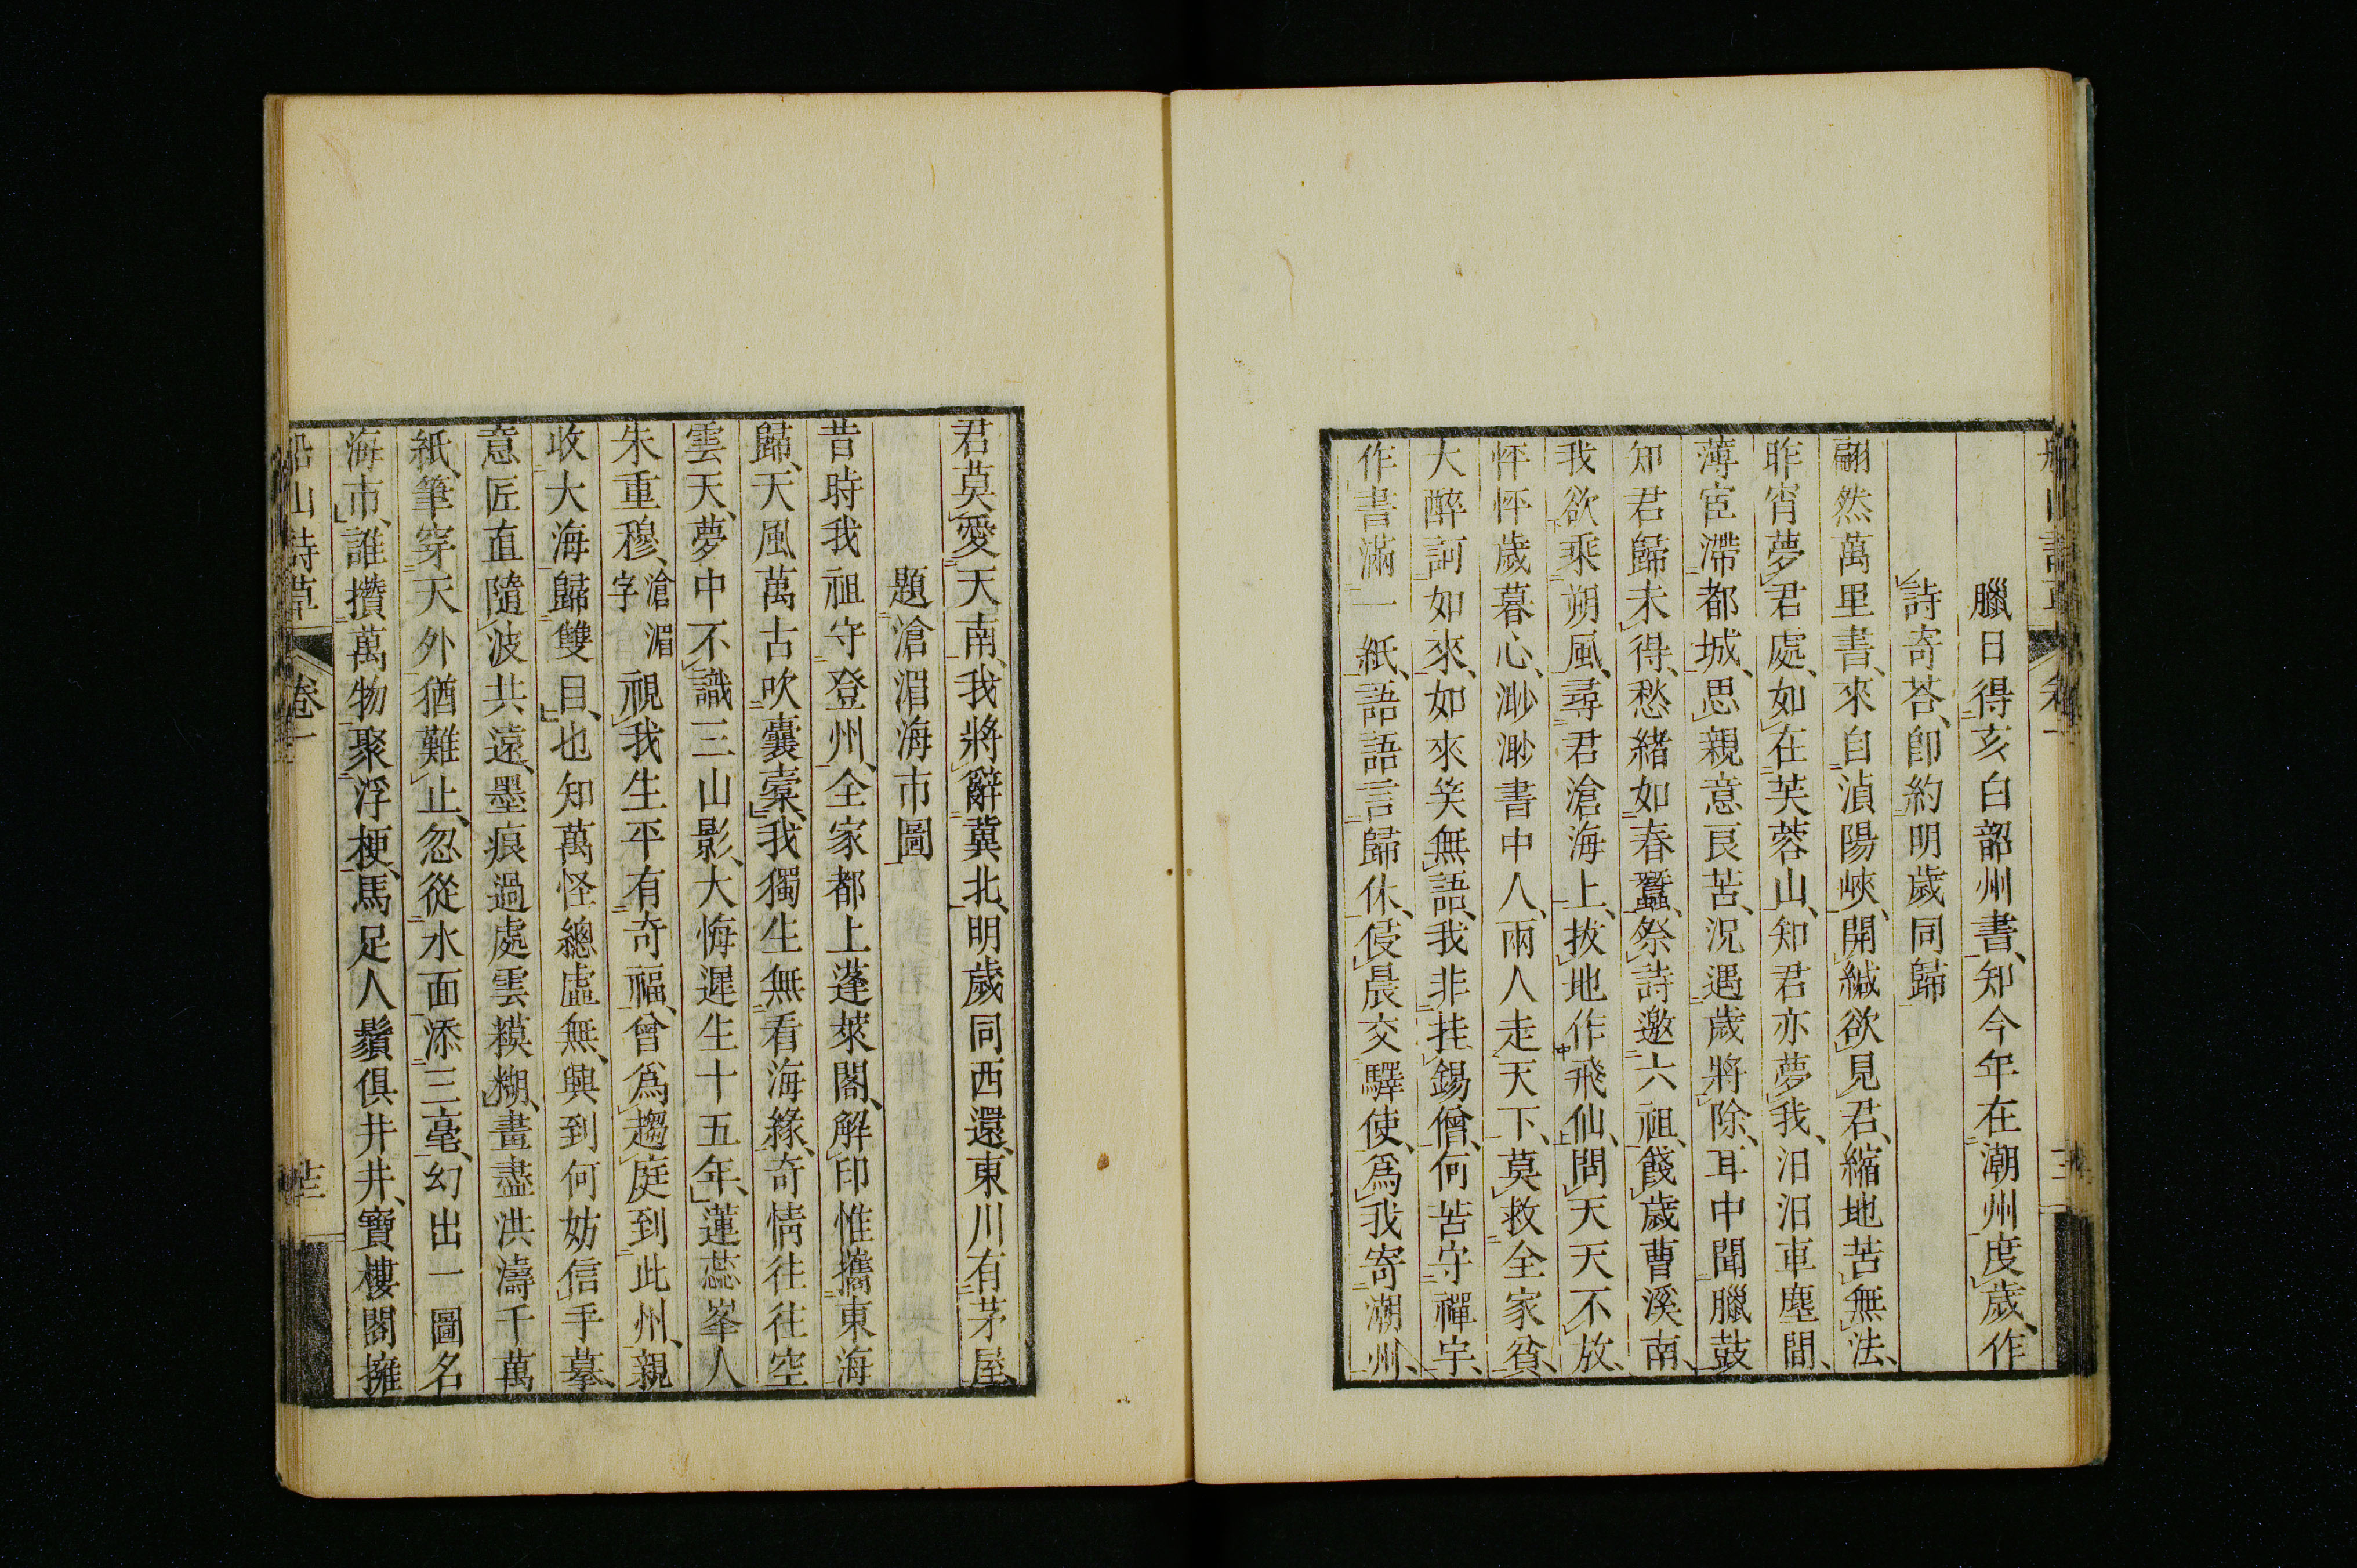 臘日得亥白韶州書、知今年在潮州度歲、作
詩寄荅、卽約明歲同歸
翩然萬里書、來自湞陽峽、開緘欲見君、縮地苦無法、
昨宵夢君處、如在芙蓉山、知君亦夢我、汨汨車塵間、
薄宦滯都城、思親意良苦、況遇歲將除、耳中聞臘鼓
知君歸未得、愁緒如春蠶、祭詩邀六祖、餞歲曹溪南、
我欲乘朔風、尋君滄海上、拔地作飛仙、問天天不放、
怦怦歲暮心、渺渺書中人、兩人走天下、莫救全家貧、
大醉訶如來、如來笑無語、我非挂錫僧、何苦守禪宇、
作書滿一紙、語語言歸休、侵晨交驛使、爲我寄潮州、
君莫愛天南、我將辭冀北、明歲同西還、東川有茅屋、
題滄湄海市圖
昔時我祖守登州、全家都上蓬萊閣、解印惟攜東海
歸、天風萬古吹囊橐、我獨生無看海緣、奇情往往空
雲天、夢中不識三山影、大悔遲生十五年、蓮蕊峯人
朱重穆、滄湄字視我生平有奇福、曾爲趨庭到此州、親
收大海歸雙目、也知萬怪總虛無、興到何妨信手摹、
意匠直隨波共遠、墨痕過處雲糢糊、畫盡洪濤千萬
紙、筆穿天外猶難止、忽從水面添三毫、幻出一圖名
海市、誰攢萬物聚浮梗、馬足人鬚俱井井、寶樓閣擁
船山詩草 卷一